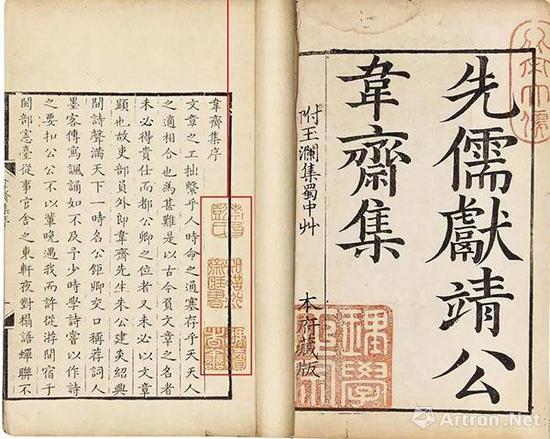 先儒獻靖公
韋齋集
附玉瀾集蜀中艸
本府藏版
韋齋集序
文章之工拙繫乎人時命之通塞存乎天天人
之適相合也為甚難是以古今負文章之名者
未必得貴仕而都公卿之位者又未必以文章
顯也故吏部員外郎韋齋先生朱公建炎紹興
間詩聲滿天下一時名公鉅卿交口稱荐詞人
墨客傳寫諷誦如不及予少時學詩嘗以作詩
之要扣公公不以輩晚遇我而許從游間于
閩部憲臺從事官舍之東軒夜對榻語蟬聯不
Artron.Net